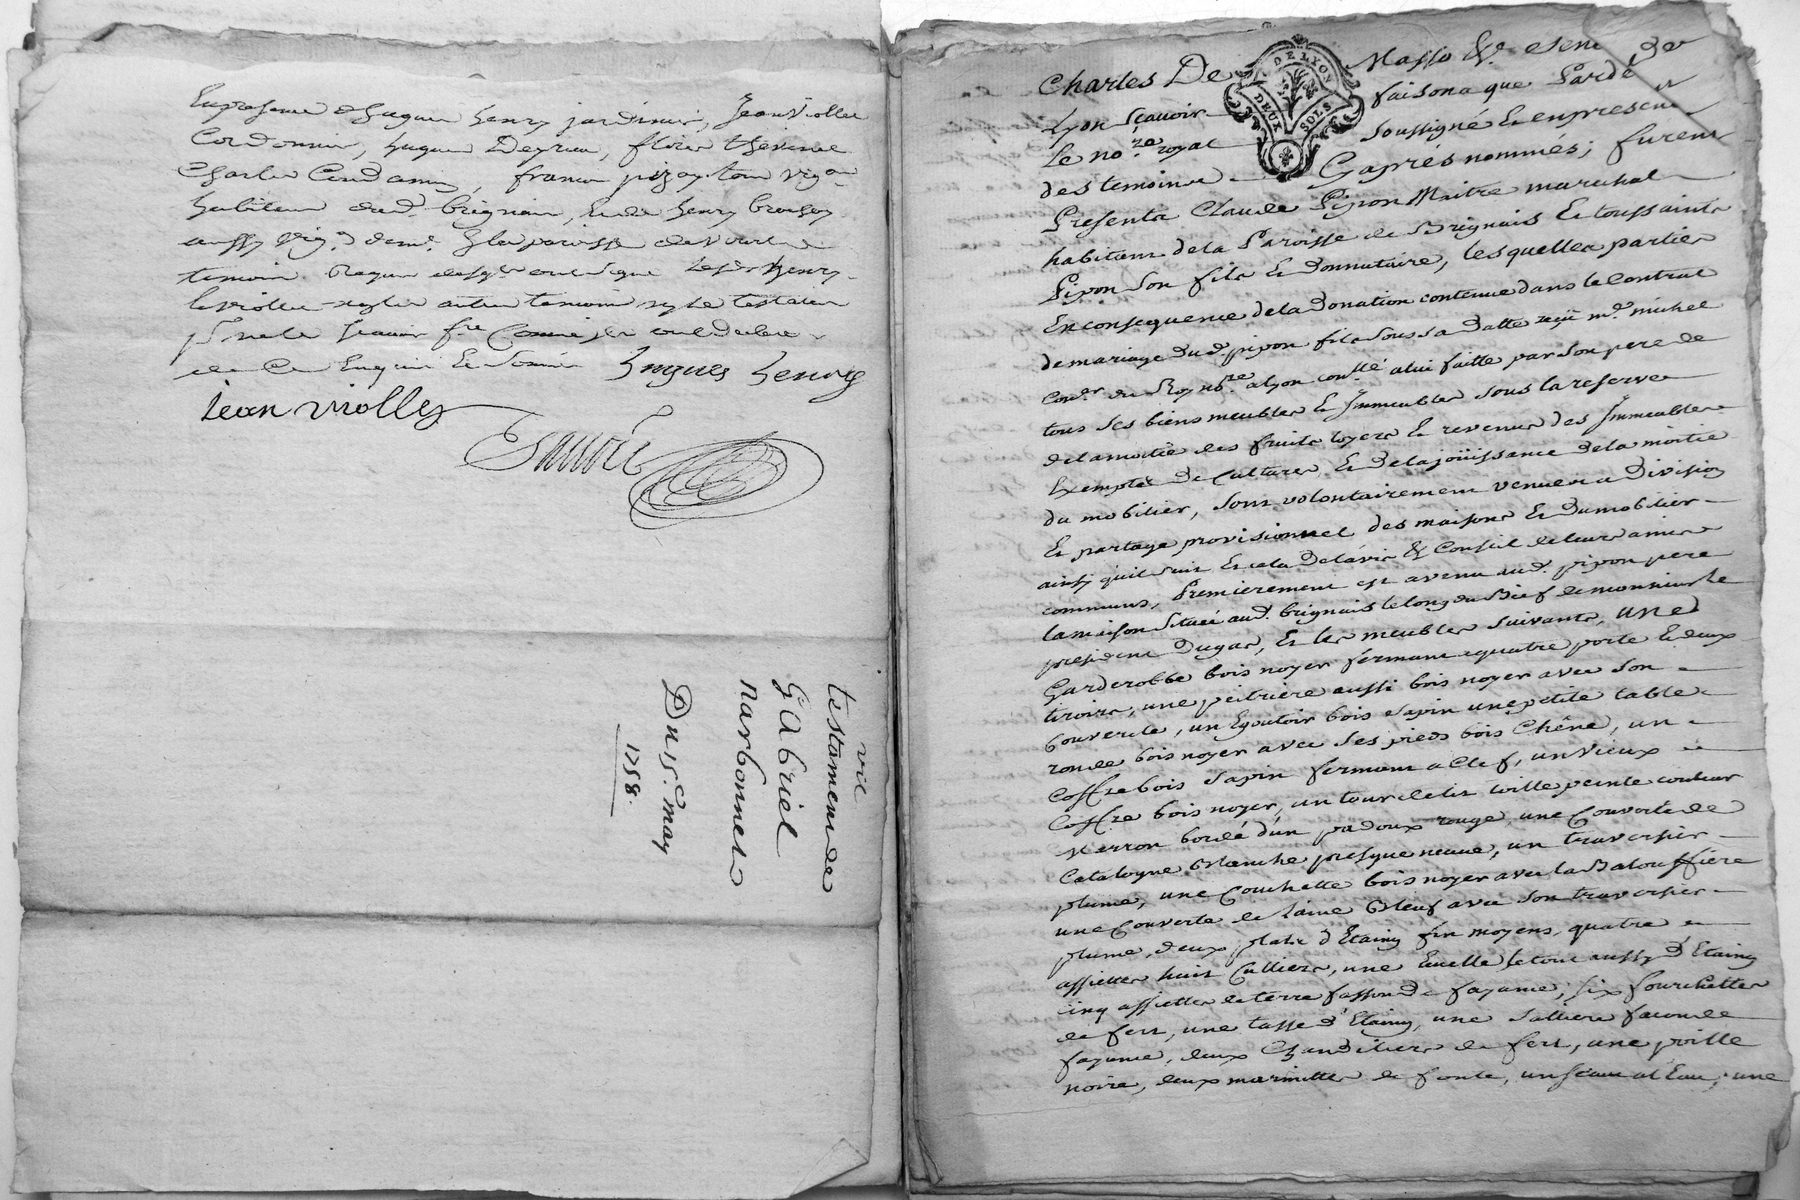 En presence d'hugues henry jardinier, Jean Violley
Cordonnier, hugues Deyrieu, fleury thevenet
Charles Condamin, françois pizay tous vig.ons
habitans dud. brignais, et de henry
aussy vig.on dem.t paroisse de vourles
temoins requis lesd. henry
et violley autres temoins ny le testateur
p.r ne le scavoir f.re comme ils ont declaré
de ce Enquis Et Sommés hugues henry
Jean violley
vic
testament de
Gabriel
narbonnet
Du 15.e may
1758.
DE LYON
DEUX SOLS
Charles De Masso &.a sene.al de
Lyon Scavoir faisons que Pardt
Le no.re royal Soussigné Et en presence
des temoins Cy après nommés; furent
Presents Claude Pipon Maitre marechal
habitant de la Paroisse de Brignais Et toussaints
Pipon Son fils Et Donnataire, lesquelles parties
En consequence de la Donation contenue dans le Contrat
de mariage dud. pipon fils Sous Sa Datte reçû m.e michel
con.er du Roy no.re a lyon a lui faitte par Son pere de
tous Ses biens meubles Et Immeubles Sous la reserve
de la moitié des fruits loyers Et revenus des Immeubles
Exemptés De Cultures, Et De la joüissance De la moitié
du mobilier, Sont volontairement venues a Division
Et partage provisionnel des maisons Et Du mobilier
ainsy qu'il Suit Et cela De l'avis & Conseil de leurs amis
communs, Premierement est avenu aud. pipon pere
la maison Située aud. brignais le long du Bief de monsieur le
president Dugas, Et les meubles Suivants, une
Garderobbe bois noyer fermant a quatre porte Et deux
tiroirs, une peitriere aussi bois noyer avec Son
couvercle, un Egoutoir bois Sapin une petite table
ronde bois noyer avec Ses pieds bois Chêne, un
Coffre bois Sapin fermant a Clef, un vieux
Coffre bois noyer, un tour de lit toille peinte couleur
Marron bordé d'un padoux rouge, une Couverte de
Catalogne Blanche presque neuve, un traversier
plume, une Couchette bois noyer avec la Balouffiere
une Couverte de Laine Bleuf avec Son traversier
plume, deux plats d'Etaing fin moyens, quatre
assiettes huit Culliers, une Ecuelle le tout aussy d'Etaing
cinq assiettes de terre fasson de fayance, Six fourchettes
de fert, une tasse d'Etaing, une Salliere facon de
fayance, deux Chandeliers de fert, une poille
noire, deux marmittes de fonte, un seau a l'Eau, une